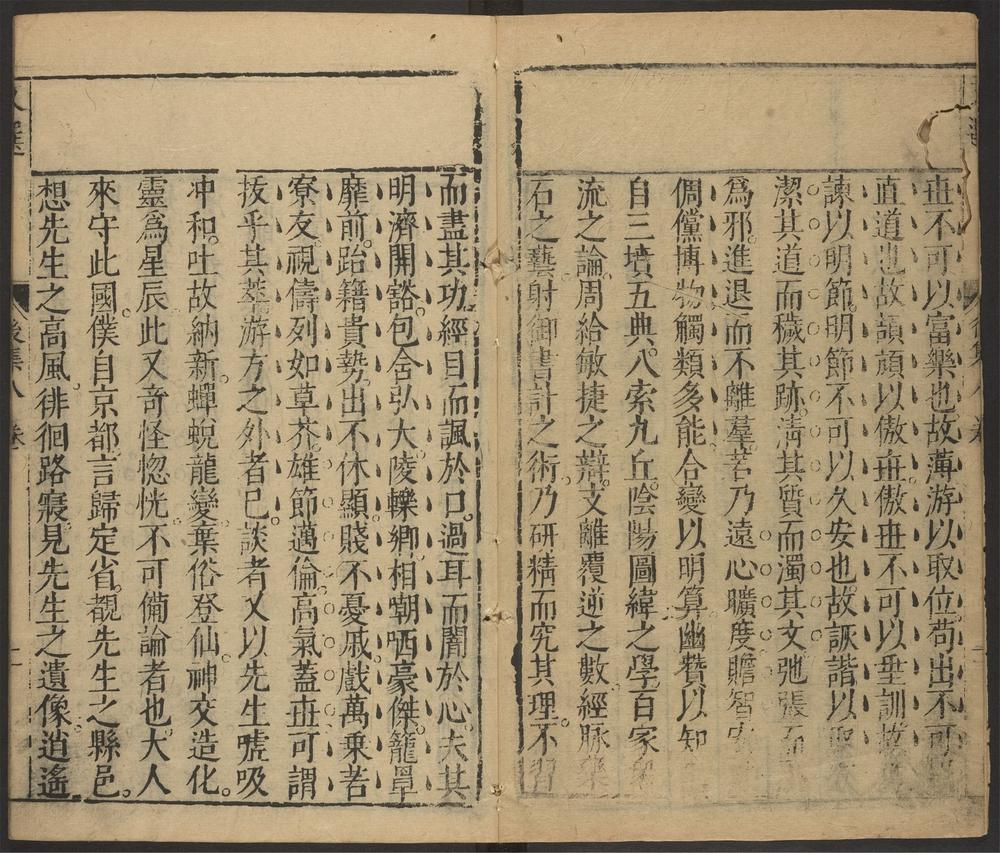 世不可以富樂也故薄游以取位苟出不可
直道也故頡頏以傲世傲世不可以垂訓故
諫以明節明節不可以久安也故詼諧以取
潔其道而穢其跡清其質而濁其文弛張而
爲邪進退而不離羣若乃遠心曠度贍智宏
倜儻博物觸類多能合變以明算幽贊以知
自三墳五典八索九丘陰陽圖緯之學百家
流之論周給敏捷之辯支離覆逆之數經脉藥
石之藝射御書計之術乃研精而究其理不習
而盡其功經目而諷於口過耳而闇於心夫其
明濟開豁包含弘大陵轢卿相嘲哂豪傑籠罩
靡前跆籍貴勢出不休顯賤不憂戚戲萬乘若
寮友視儔列如草芥雄節邁倫高氣蓋世可謂
拔乎其萃游方之外者已談者又以先生噓吸
冲和吐故納新蟬蛻龍變棄俗登仙神交造化
靈爲星辰此又奇怪惚恍不可備論者也大人
來守此國僕自京都言歸定省覩先生之縣邑
想先生之高風徘徊路寢見先生之遺像逍遙
文選 後集八卷